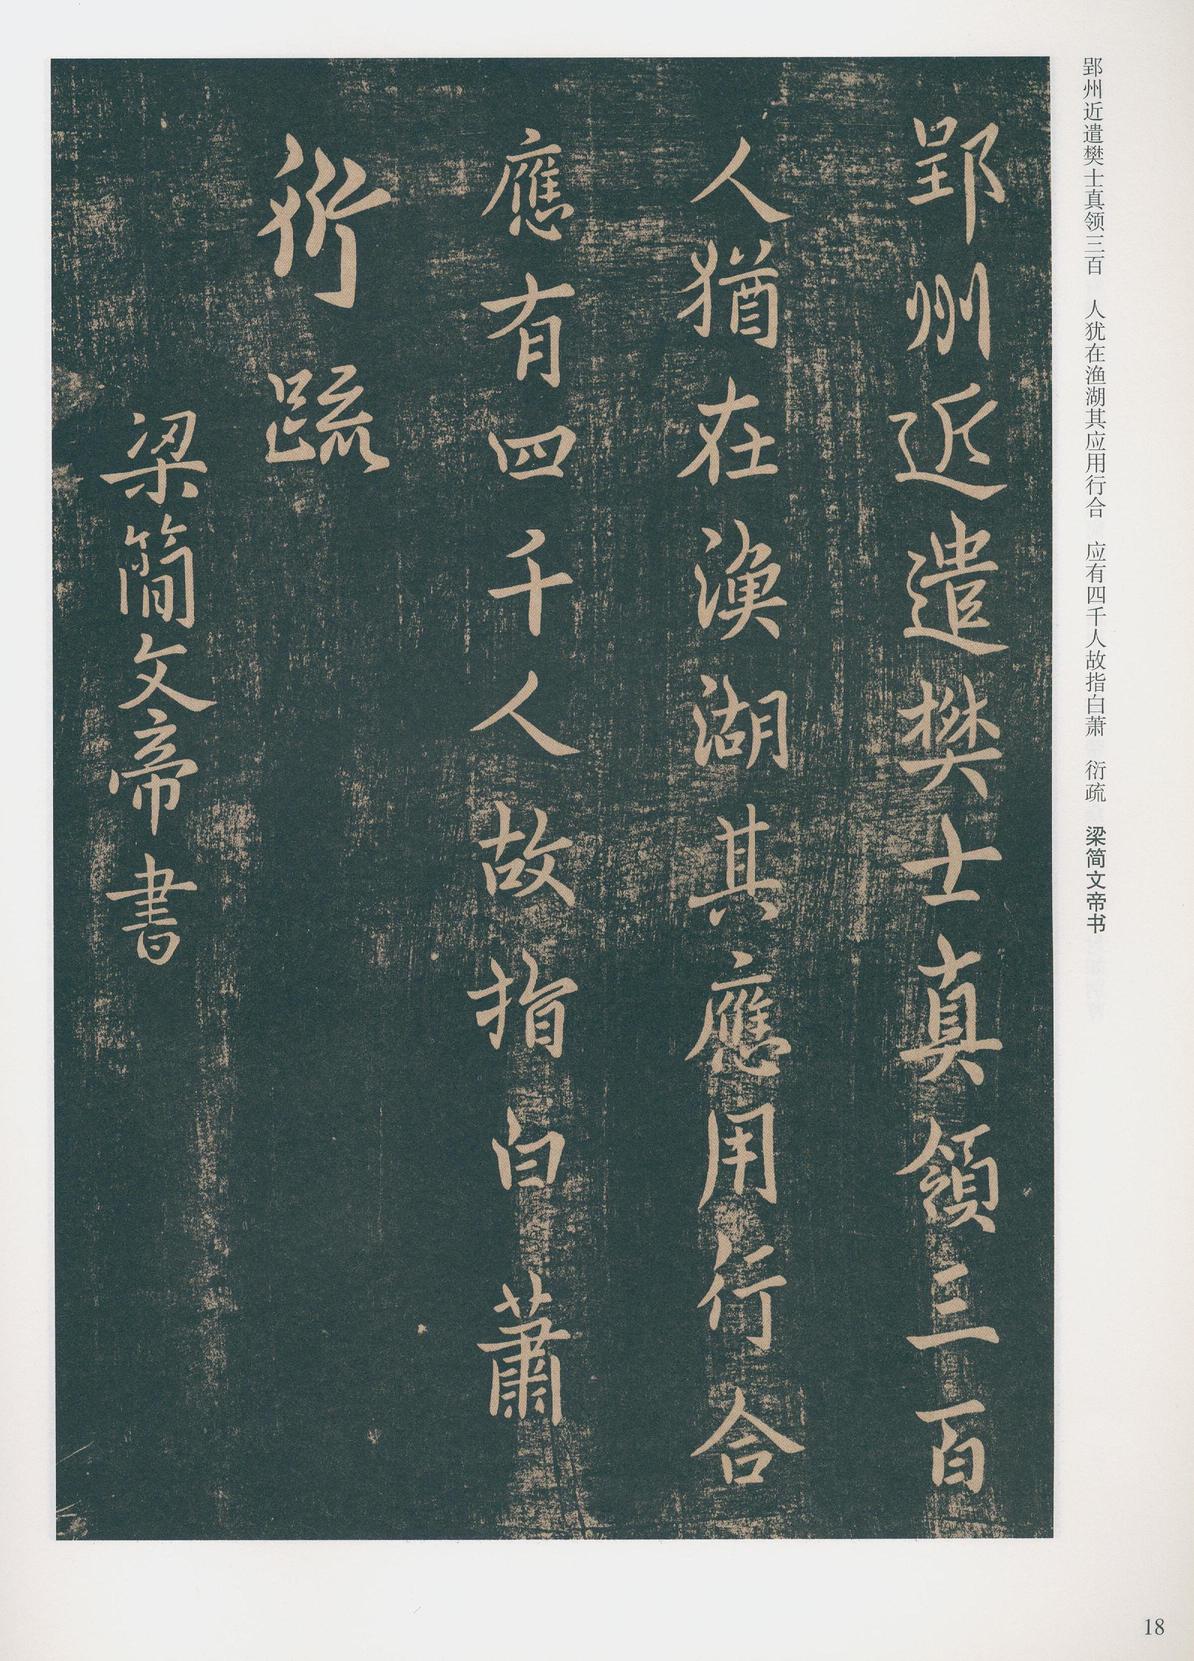 郢州近遣樊士真领三百　人犹在渔湖其应用行合　应有四千人故指白萧　衍疏　梁简文帝书
郢州近遣樊士真領三百
人猶在漁湖其應用行合
應有四千人故指白蕭
衍疏
梁簡文帝書
18